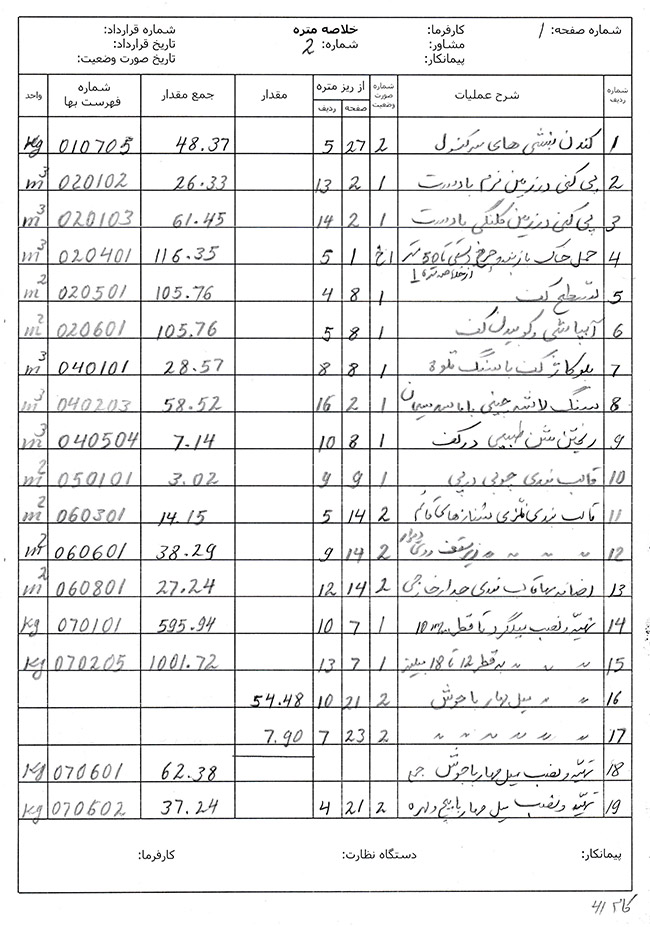 شماره صفحه: 1 کارفرما: خلاصه متره شماره قرارداد:
مشاور: شماره: 2 تاریخ قرارداد:
پیمانکار: تاریخ صورت وضعیت:
شماره ردیف شرح عملیات شماره صورت وضعیت از ریز متره صفحه ردیف مقدار جمع مقدار شماره فهرست بها واحد
1 کندن نبشی های سرکنسول 2 27 5 48.37 010705 kg
2 پی کنی در زمین نرم با دست 1 2 13 26.33 020102 m3
3 پی کنی در زمین کلنگی با دست 1 2 14 61.45 020103 m3
4 حمل خاک با زنبه و چرخ دستی تا 50 متر 1خ 1 5 116.35 020401 m3
از خلاصه متره 1
5 تسطیح کف 1 8 4 105.76 020501 m2
6 آبپاشی و کوبیدن کف 1 8 5 105.76 020601 m2
7 بلوکاژ کف با سنگ قلوه 1 8 8 28.57 040101 m3
8 سنگ لاشه چینی با ماسه سیمان 1 2 16 58.52 040203 m3
9 ریختن شن طبیعی در کف 1 8 10 7.14 040504 m3
10 قالب بندی چوبی در پی 1 9 9 3.02 050101 m2
11 قالب بندی فلزی شنازهای قائم 2 14 5 14.15 060301 m2
12 〃 〃 〃 زیر سقف روی دیوار 2 14 9 38.29 060601 m2
13 اضافه بها قالب بندی جدار خارجی 2 14 12 27.24 060801 m2
14 تهیه و نصب میلگرد تا قطر 10 m.m 1 7 10 595.94 070101 kg
15 〃 〃 〃 به قطر 12 تا 18 میلیمتر 1 7 13 1001.72 070205 kg
16 〃 〃 〃 میل مهار با جوش 2 21 10 54.48
17 〃 〃 〃 〃 〃 2 23 7 7.90
18 تهیه و نصب میل مهار با جوش جمع 62.38 070601 kg
19 تهیه و نصب میل مهار با پیچ و مهره 2 21 4 37.24 070602 kg
پیمانکار: دستگاه نظارت: کارفرما: